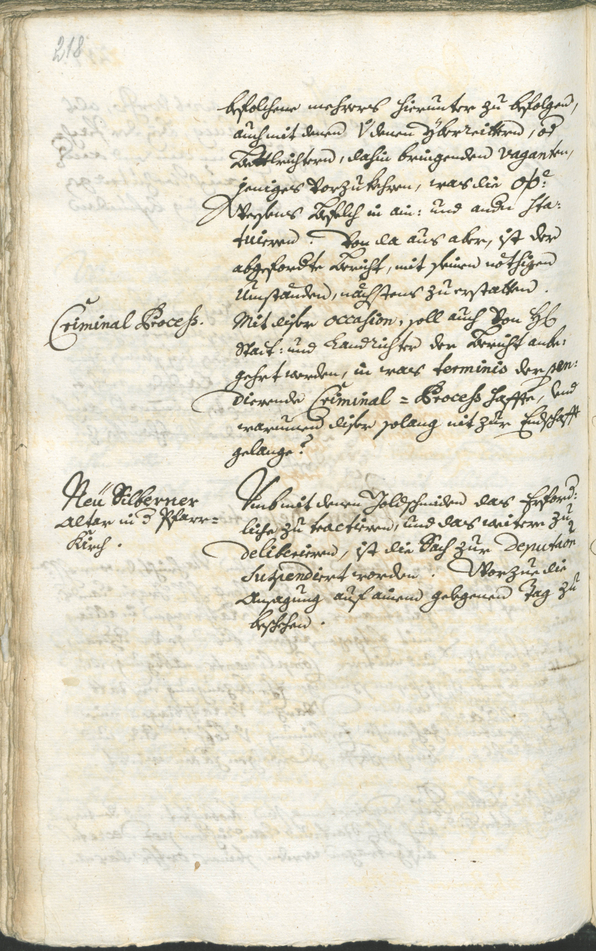 218
befolchene mehrers hierunter zu befolgen,
auch mit denen Überreittern, od
Bettlrichtern, dahin bringenden vaganten,
jeniges vorzukehren, was die
Wesens Befelch in ain: und andn sta:
tuieren. Von da aus aber, ist der
abgeforderte Bericht, mit seinen nöthigen
Umständen, nächstens zu erstatten.
Criminal Process.
Mit diser occasion, soll auch von H:
Statt: und Landrichter der Bericht anbe:
gehrt werden, in was terminis der pen:
dierende Criminal = Process haffte, und
warumen diser solang nit zur Endschafft
gelange?
Neu Silberner
Altar in d Pfarr=
Kirch.
Umb mit denen Goldschmiden das Erford:
liche zu tractieren, und das weitere zu
deliberieren, ist die Sach zur Deputaon
suspendirt worden. Worzue die
Ansagung auf ainem gelegenen Tag zu
beschehen.